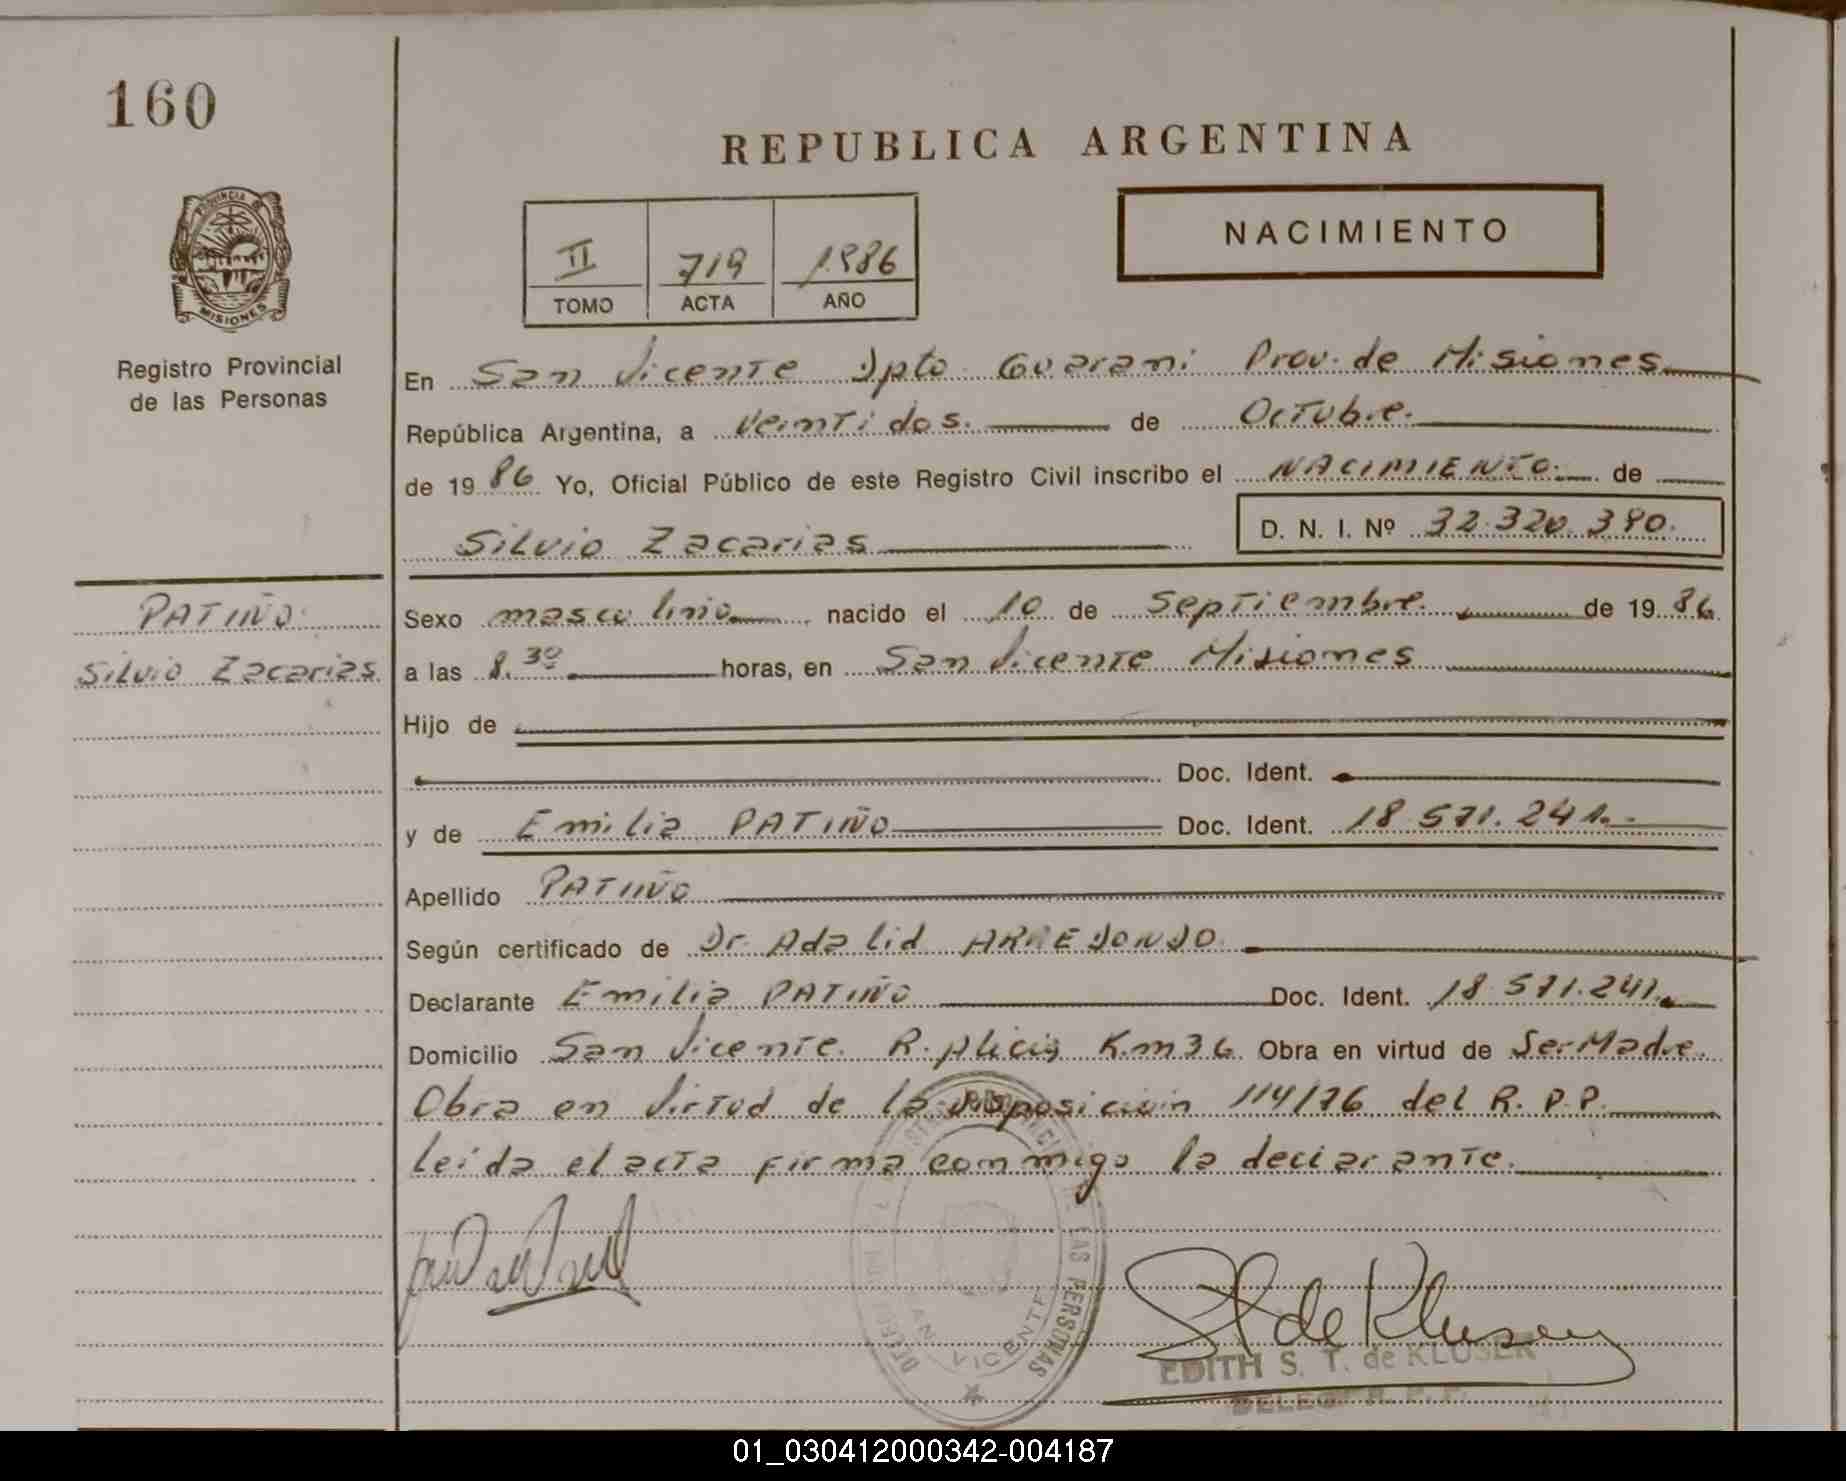 160
REPUBLICA ARGENTINA
NACIMIENTO
II 719 1986
TOMO ACTA AÑO
PROVINCIA DE
MISIONES
Registro Provincial
de las Personas
En San Vicente Dpto Guarani Prov. de Misiones
República Argentina, a veintidos. de Octubre.
de 1986 Yo, Oficial Público de este Registro Civil inscribo el NACIMIENTO. de
Silvio Zacarias D. N. I. Nº 32.320.390.
PATIÑO
Silvio Zacarias
Sexo masculino nacido el 10 de Septiembre. de 1986.
a las 8.30 horas, en San Vicente Misiones
Hijo de
Doc. Ident.
y de Emilia PATIÑO Doc. Ident. 18.571.241.
Apellido PATIÑO
Según certificado de Dr. Adalid ARREDONDO
Declarante Emilia PATIÑO Doc. Ident. 18.571.241.
Domicilio San Vicente. R. Km 36. Obra en virtud de Ser Madre.
Obra en Virtud de la disposicion 114/76 del R.P.P.
Leida el acta firma conmigo la declarante.
SAN VICENTE
LAS PERSONAS
St de Kluser
EDITH S. T. de KLUSER
DELEG. R. P. P.
01_030412000342-004187